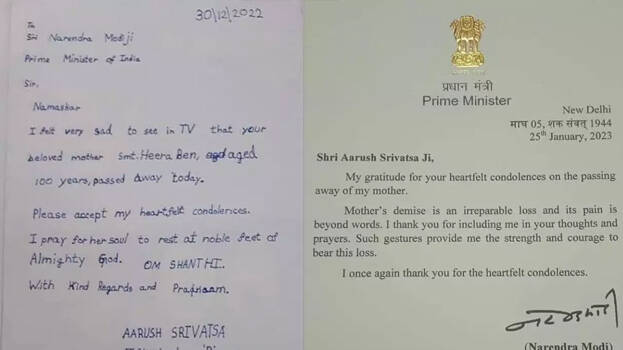 30/12/2022
To
Sri Narendra Modi ji
Prime Minister of India
Sir.
Namaskar
I felt very sad to see in TV that your
beloved mother Smt. Heera Ben, aged
100 years, passed away today.
Please accept my heartfelt condolences.
I pray for her soul to rest at noble feet of
Almighty God. OM SHANTHI..
With Kind Regards and Pranaam.
AARUSH SRIVATSA
प्रधान मंत्री
Prime Minister
New Delhi
माघ 05, शक संवत् 1944
25th January, 2023
Shri Aarush Srivatsa Ji,
My gratitude for your heartfelt condolences on the passing
away of my mother.
Mother's demise is an irreparable loss and its pain is
beyond words. I thank you for including me in your thoughts and
prayers. Such gestures provide me the strength and courage to
bear this loss.
I once again thank you for the heartfelt condolences.
(Narendra Modi)